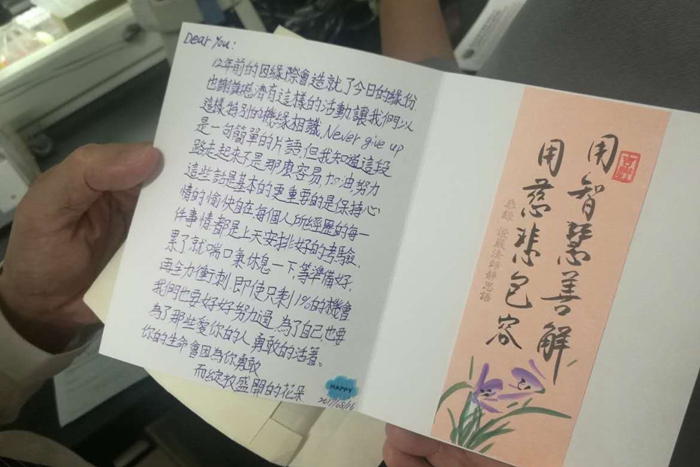 Dear You:
12年前的因緣際會造就了今日的緣份
也謝謝慈濟有這樣的活動讓我們以
這樣特別的機緣相識. Never give up
是一句簡單的片語,但我知道這段
路走起來不是那麼容易,加油努力
這些話是基本的更重要的是保持心
情的愉快自在,每個人所經歷的每一
件事情都是上天安排好的考驗.
累了就喘口氣休息一下,等準備好,
再全力衝刺.即使只剩1%的機會
我們也要好好努力過,為了自己也要
為了那些愛你的人勇敢的活著。
你的生命會因為你勇敢
而綻放盛開的花朵
HAPPY
用智慧善解
用慈悲包容
恭錄 證嚴法師靜思語